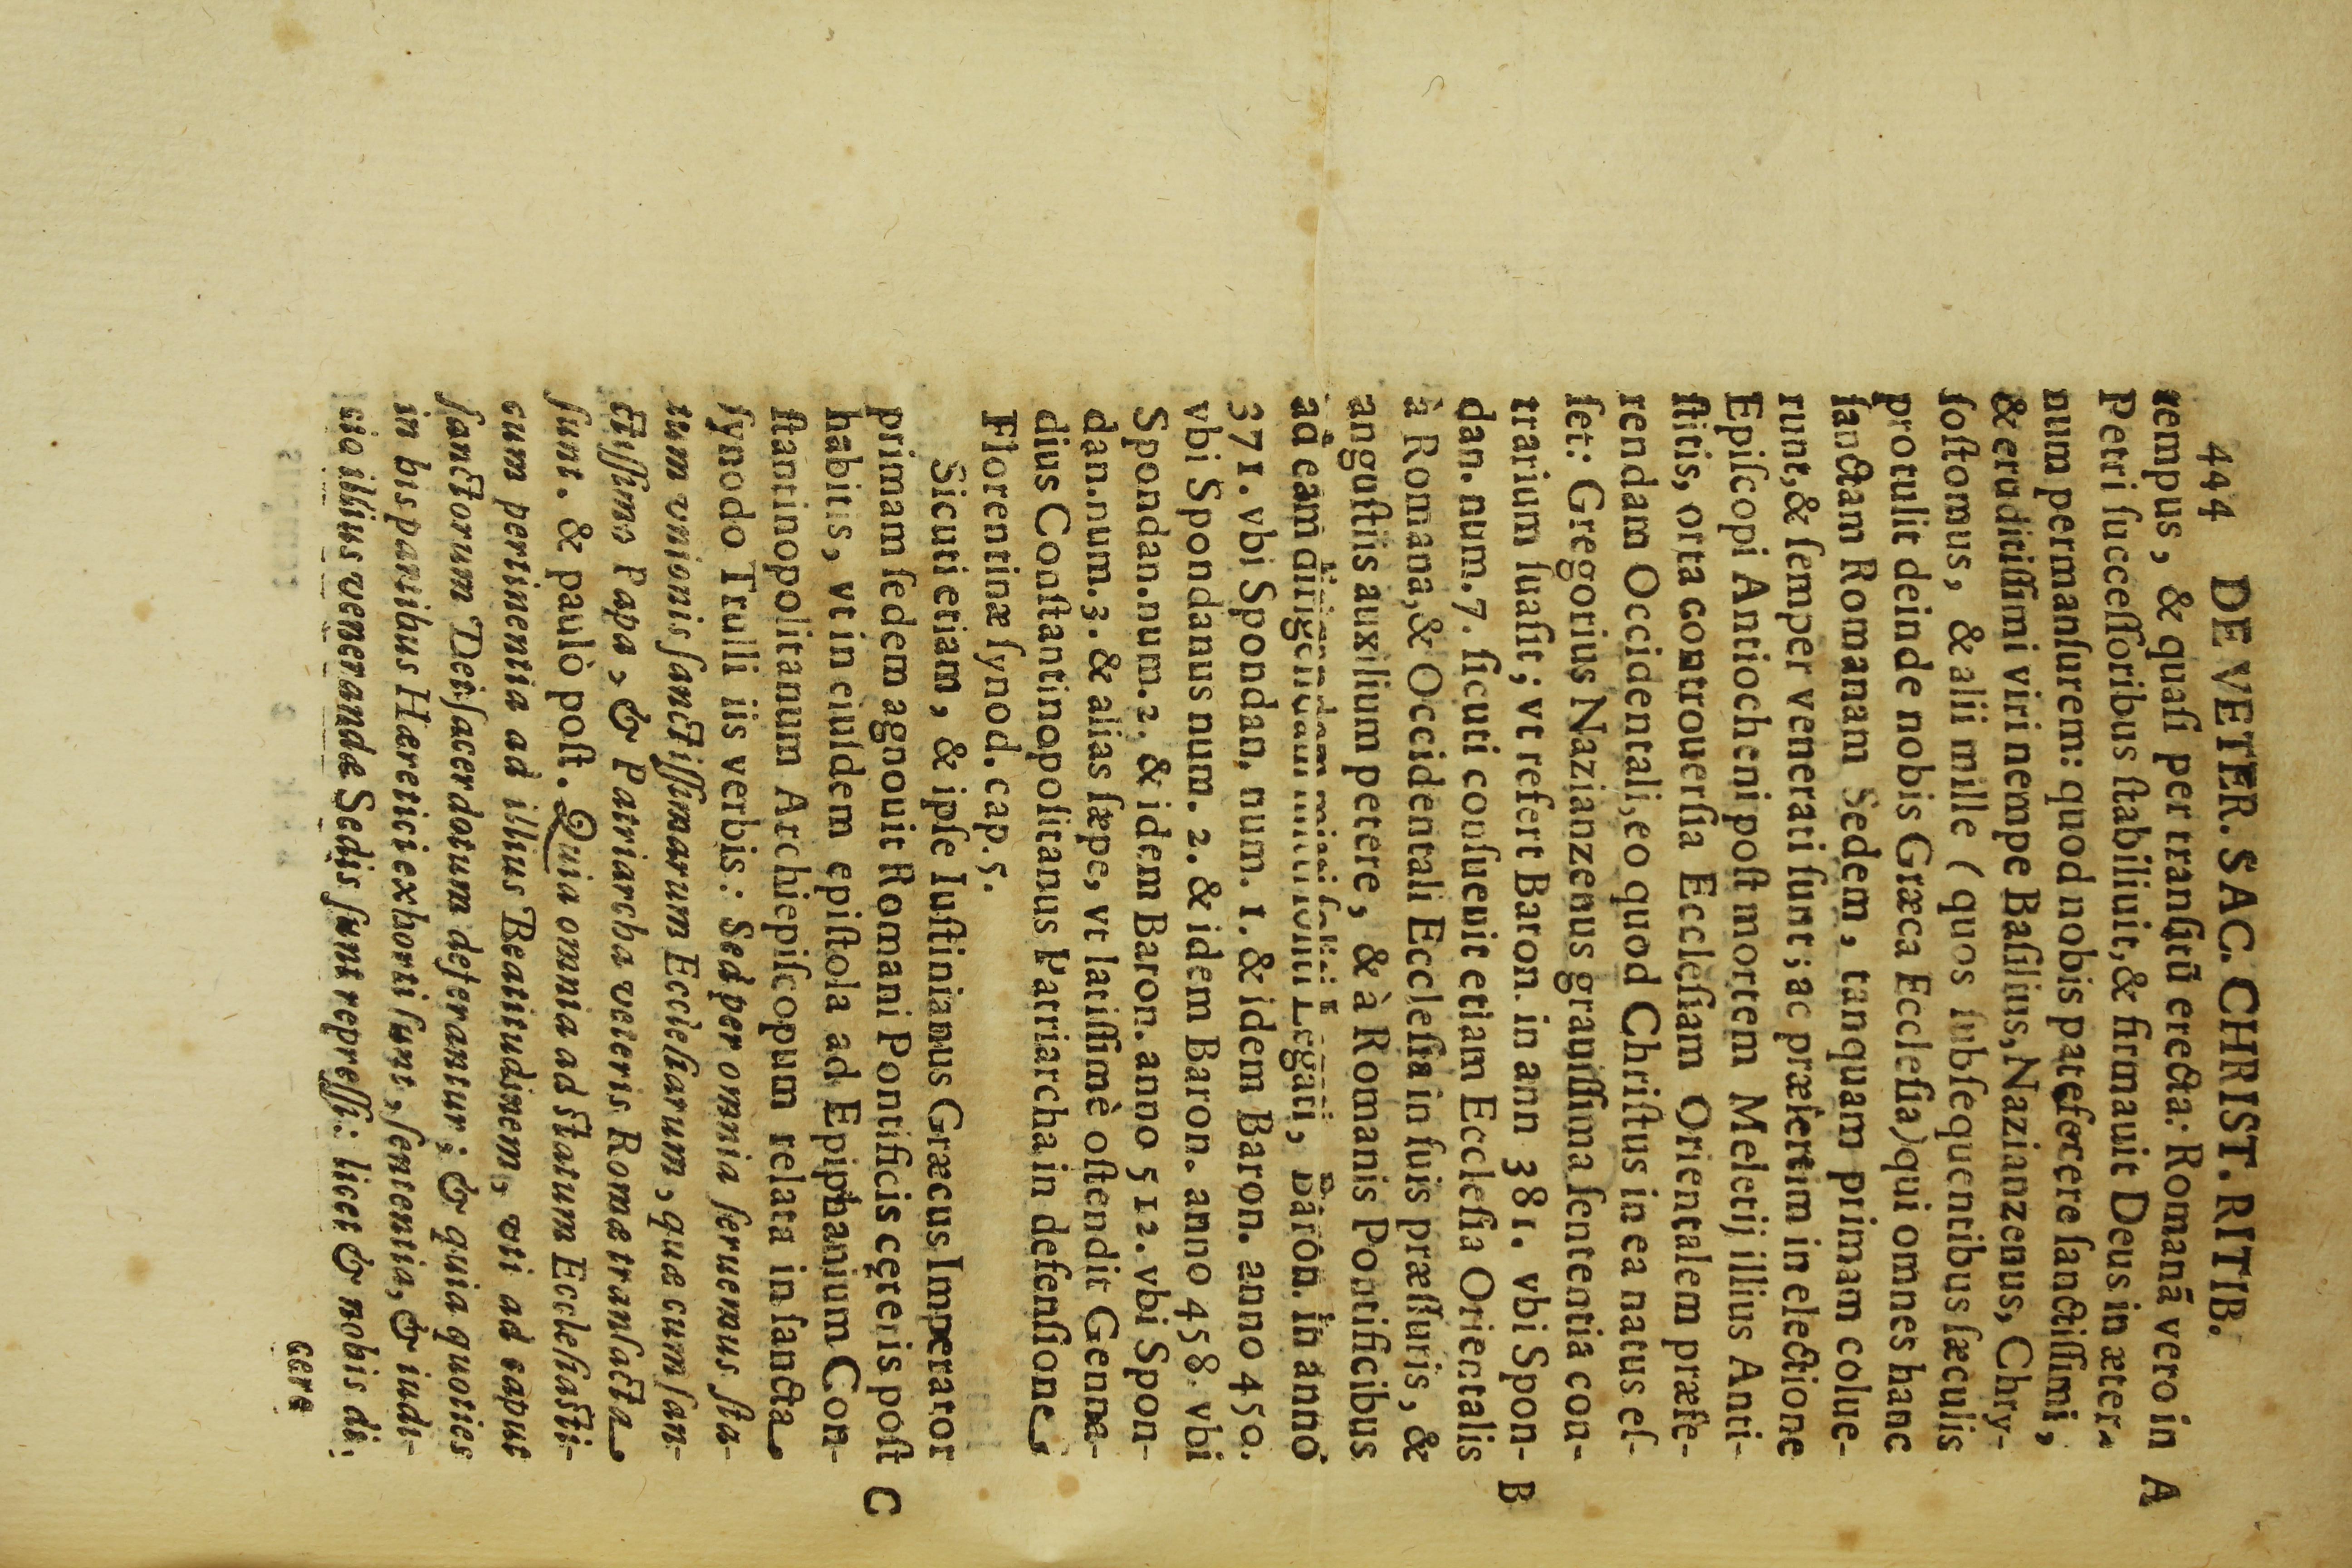 444 DE VETER. SAC. CHRIST. RITIB.
tempus, & quaſi per tranſitũ erecta: Romanã vero in A
Petri ſucceſſoribus ſtabiliuit, & firmauit Deus in æter-
num permanſurem: quod nobis patefecere ſanctiſſimi,
& eruditiſſimi viri nempe Baſilius, Nazianzenus, Chry-
ſoſtomus, & alii mille (quos ſubſequentibus ſæculis
protulit deinde nobis Græca Eccleſia) qui omnes hanc
ſanctam Romanam Sedem, tanquam primam colue-
runt, & ſemper venerati ſunt; ac præſertim in electione
Epiſcopi Antiocheni poſt mortem Meletij illius Anti-
ſtitis, orta controuerſia Eccleſiam Orientalem præfe-
rendam Occidentali, eo quod Chriſtus in ea natus eſ-
ſet: Gregorius Nazianzenus grauiſſima ſententia con-
trarium ſuaſit; vt refert Baron. in ann 381. vbi Spon- B
dan. num. 7. ſicuti conſueuit etiam Eccleſia Orientalis
à Romana, & Occidentali Eccleſia in ſuis præſſuris, &
anguſtiis auxilium petere, & à Romanis Pontificibus
ad eam dirigendam miſſi Legati, Baron. in anno
371. vbi Spondan, num. 1. & idem Baron. anno 450.
vbi Spondanus num. 2. & idem Baron. anno 458. vbi
Spondan. num. 2. & idem Baron. anno 512. vbi Spon-
dan. num. 3. & alias ſæpe, vt latiſſimè oſtendit Genna-
dius Conſtantinopolitanus Patriarcha in defenſione
Florentinæ ſynod. cap. 5.
Sicuti etiam, & ipſe Iuſtinianus Græcus Imperator
primam ſedem agnouit Romani Pontificis cęteris poſt C
habitis, vt in eiuſdem epiſtola ad Epiphanium Con-
ſtantinopolitanum Archiepiſcopum relata in ſancta
ſynodo Trulli iis verbis: Sed per omnia ſeruemus ſta-
tum vnionis ſanctiſſimarum Eccleſiarum, quæ cum ſan-
ctiſſimo Papa, & Patriarcha veteris Romæ tranſacta
ſunt. & paulò poſt. Quia omnia ad ſtatum Eccleſiaſti-
cum pertinentia ad illius Beatitudinem, vti ad caput
ſanctorum Dei ſacerdotum deferantur; & quia quoties
in his partibus Hæretici exhorti ſunt, ſententia, & iudi-
cio illius venerandæ Sedis ſunt repreſſi: licet & nobis di-
cere